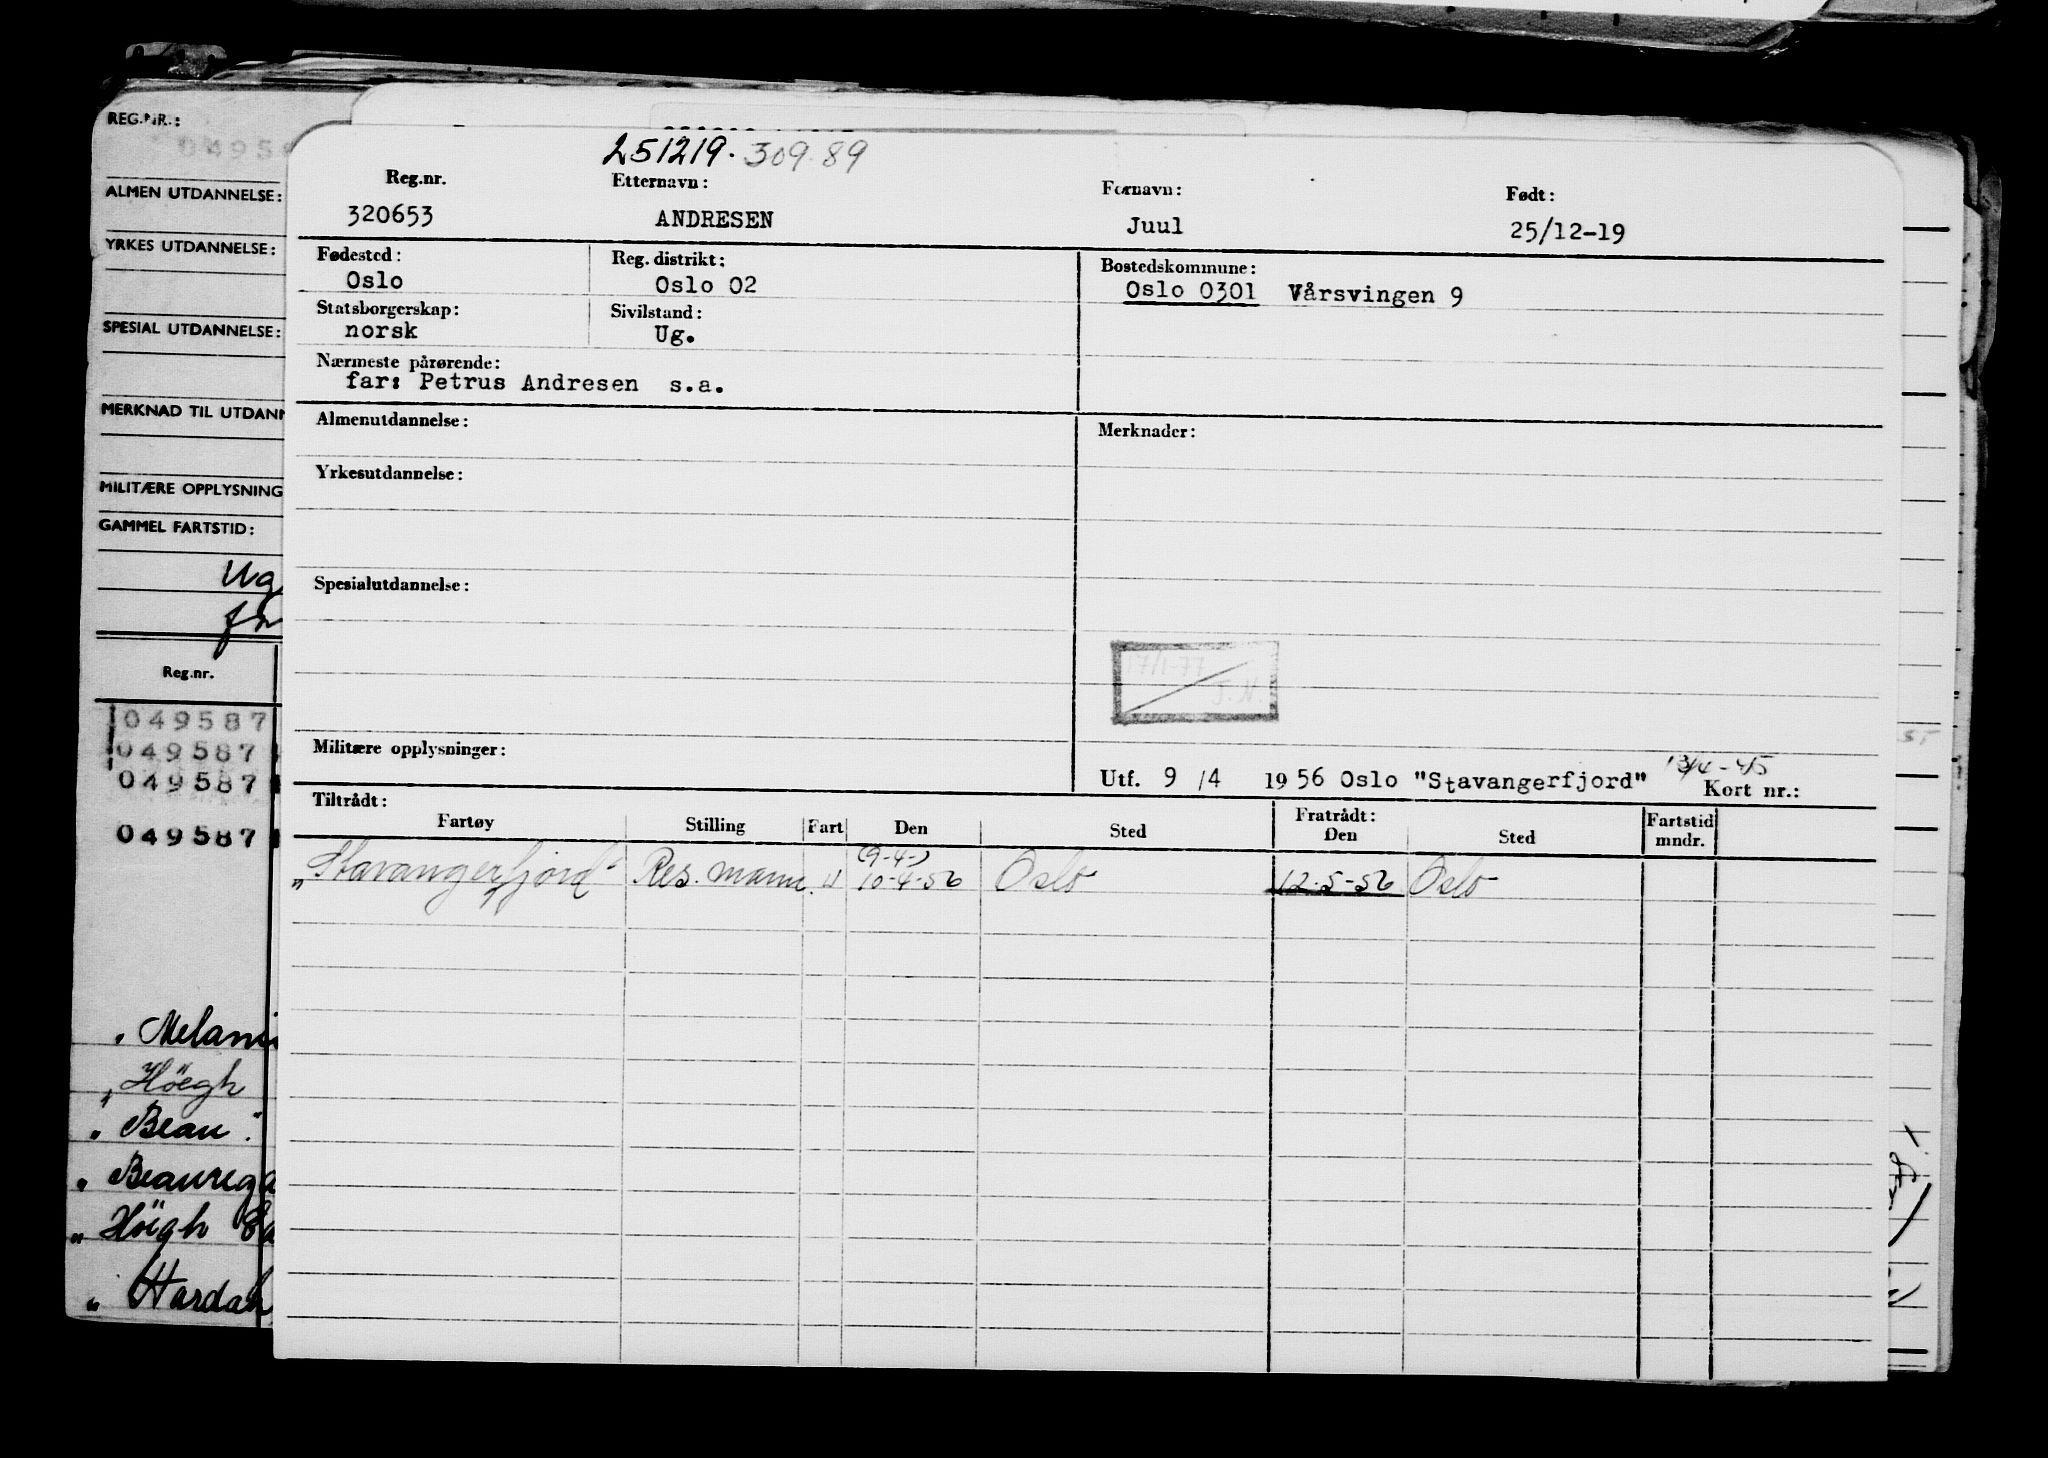 REG.NR.:
0495
ALMEN UTDANNELSE:
YRKES UTDANNELSE:
SPESIAL UTDANNELSE:
MERKNAD TIL UTDANN
MILITÆRE OPPLYSNING
GAMMEL FARTSTID:
Ug
Reg.nr.
049587
049587
049587
049587
„ Melani
„ Höegh
„ Beau".
„ Beaurega
„ Höegh
„ Hardan
251219. 309.89
Reg.nr. Etternavn: Fornavn: Født:
320653 ANDRESEN Juul 25/12-19
Fødested: Reg. distrikt: Bostedskommune:
Oslo Oslo 02 Oslo 0301 Vårsvingen 9
Statsborgerskap: Sivilstand:
norsk Ug.
Nærmeste pårørende:
far: Petrus Andresen s.a.
Almenutdannelse: Merknader:
Yrkesutdannelse:
Spesialutdannelse:
17/1-77
J.N.
Militære opplysninger:
Utf. 9 /4 1956 Oslo "Stavangerfjord" Kort nr.:
Tiltrådt: Fratrådt:
Fartøy Stilling Fart Den Sted Den Sted Fartstid mndr.
(9-4-)
„Stavangerfjord" Res. mann. U 10-4-56 Oslo 12-5-56 Oslo